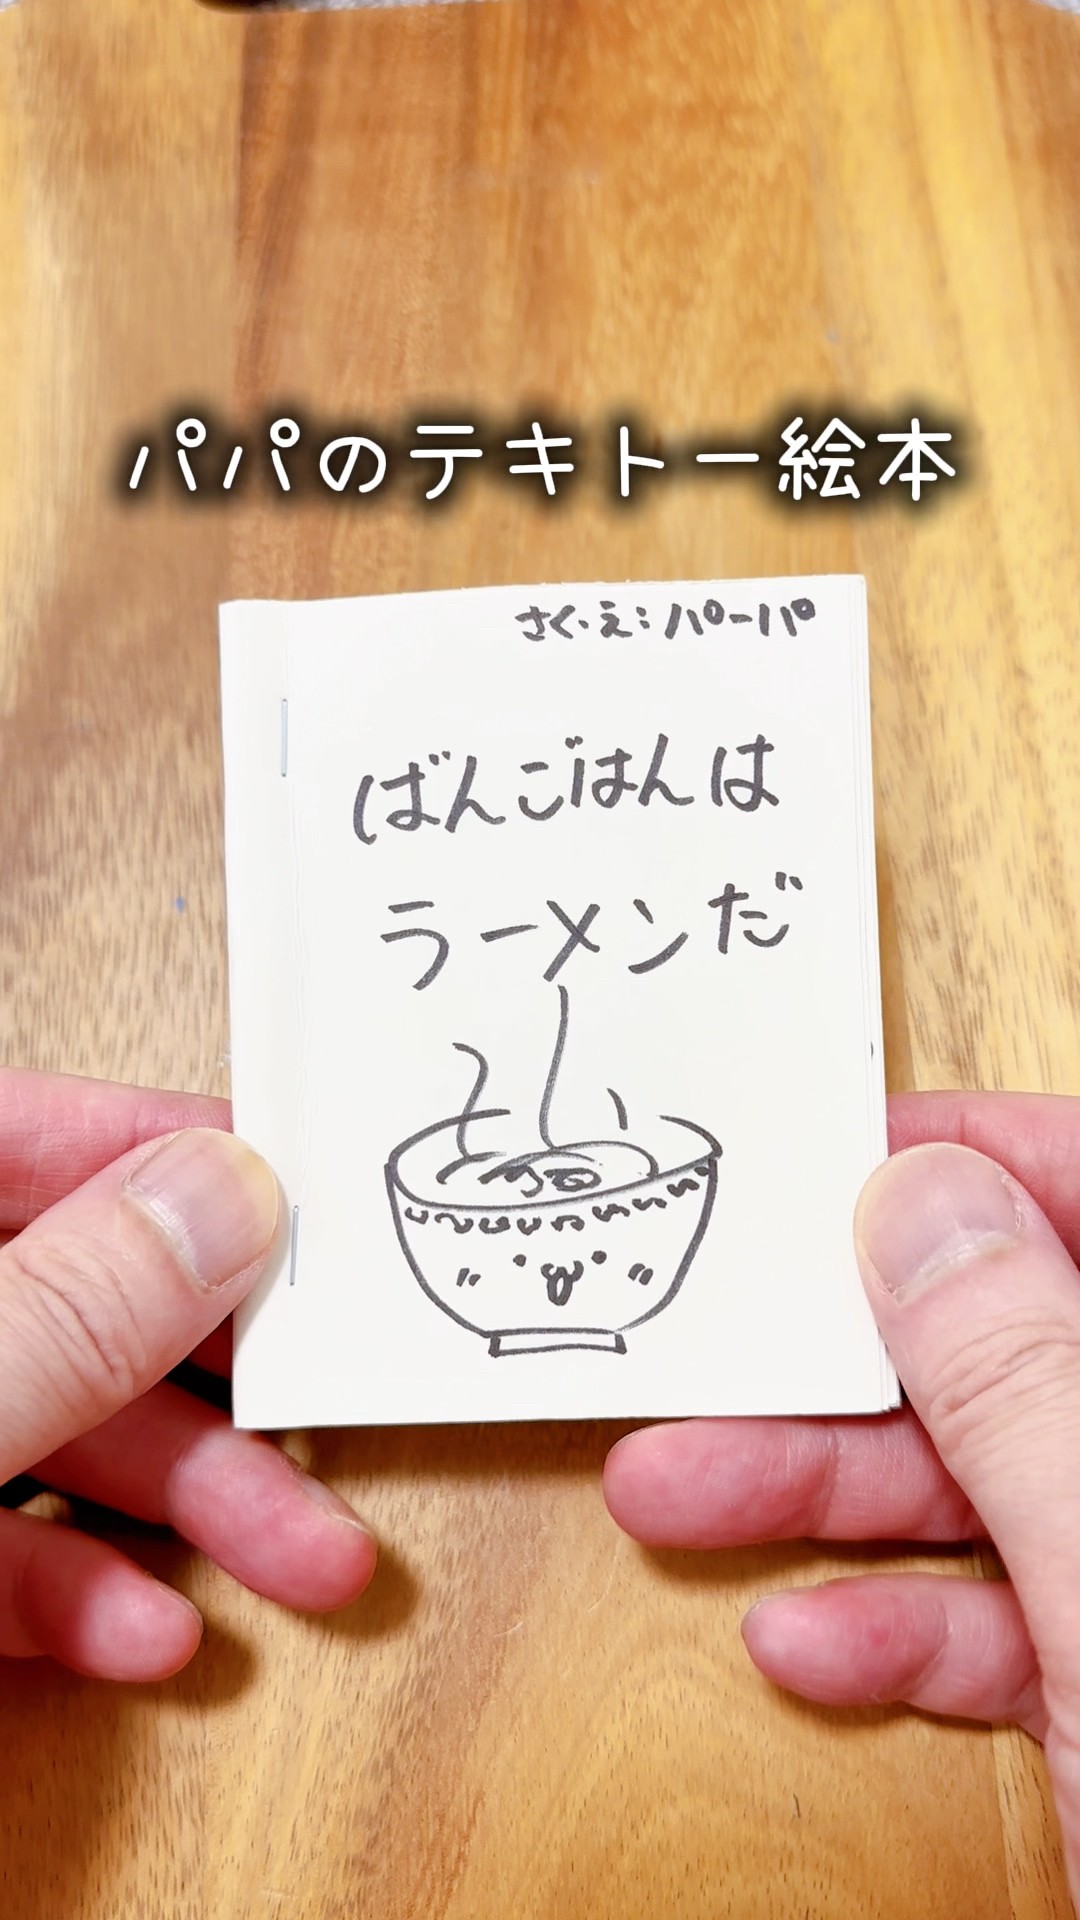 パパのテキトー絵本
さく・え：パーパ
ばんごはんは
ラーメンだ